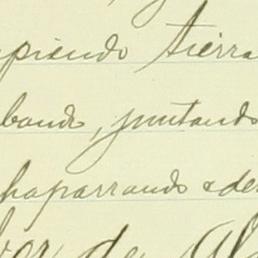 piendo tierra
bando, juntando
chaparrando + de
de